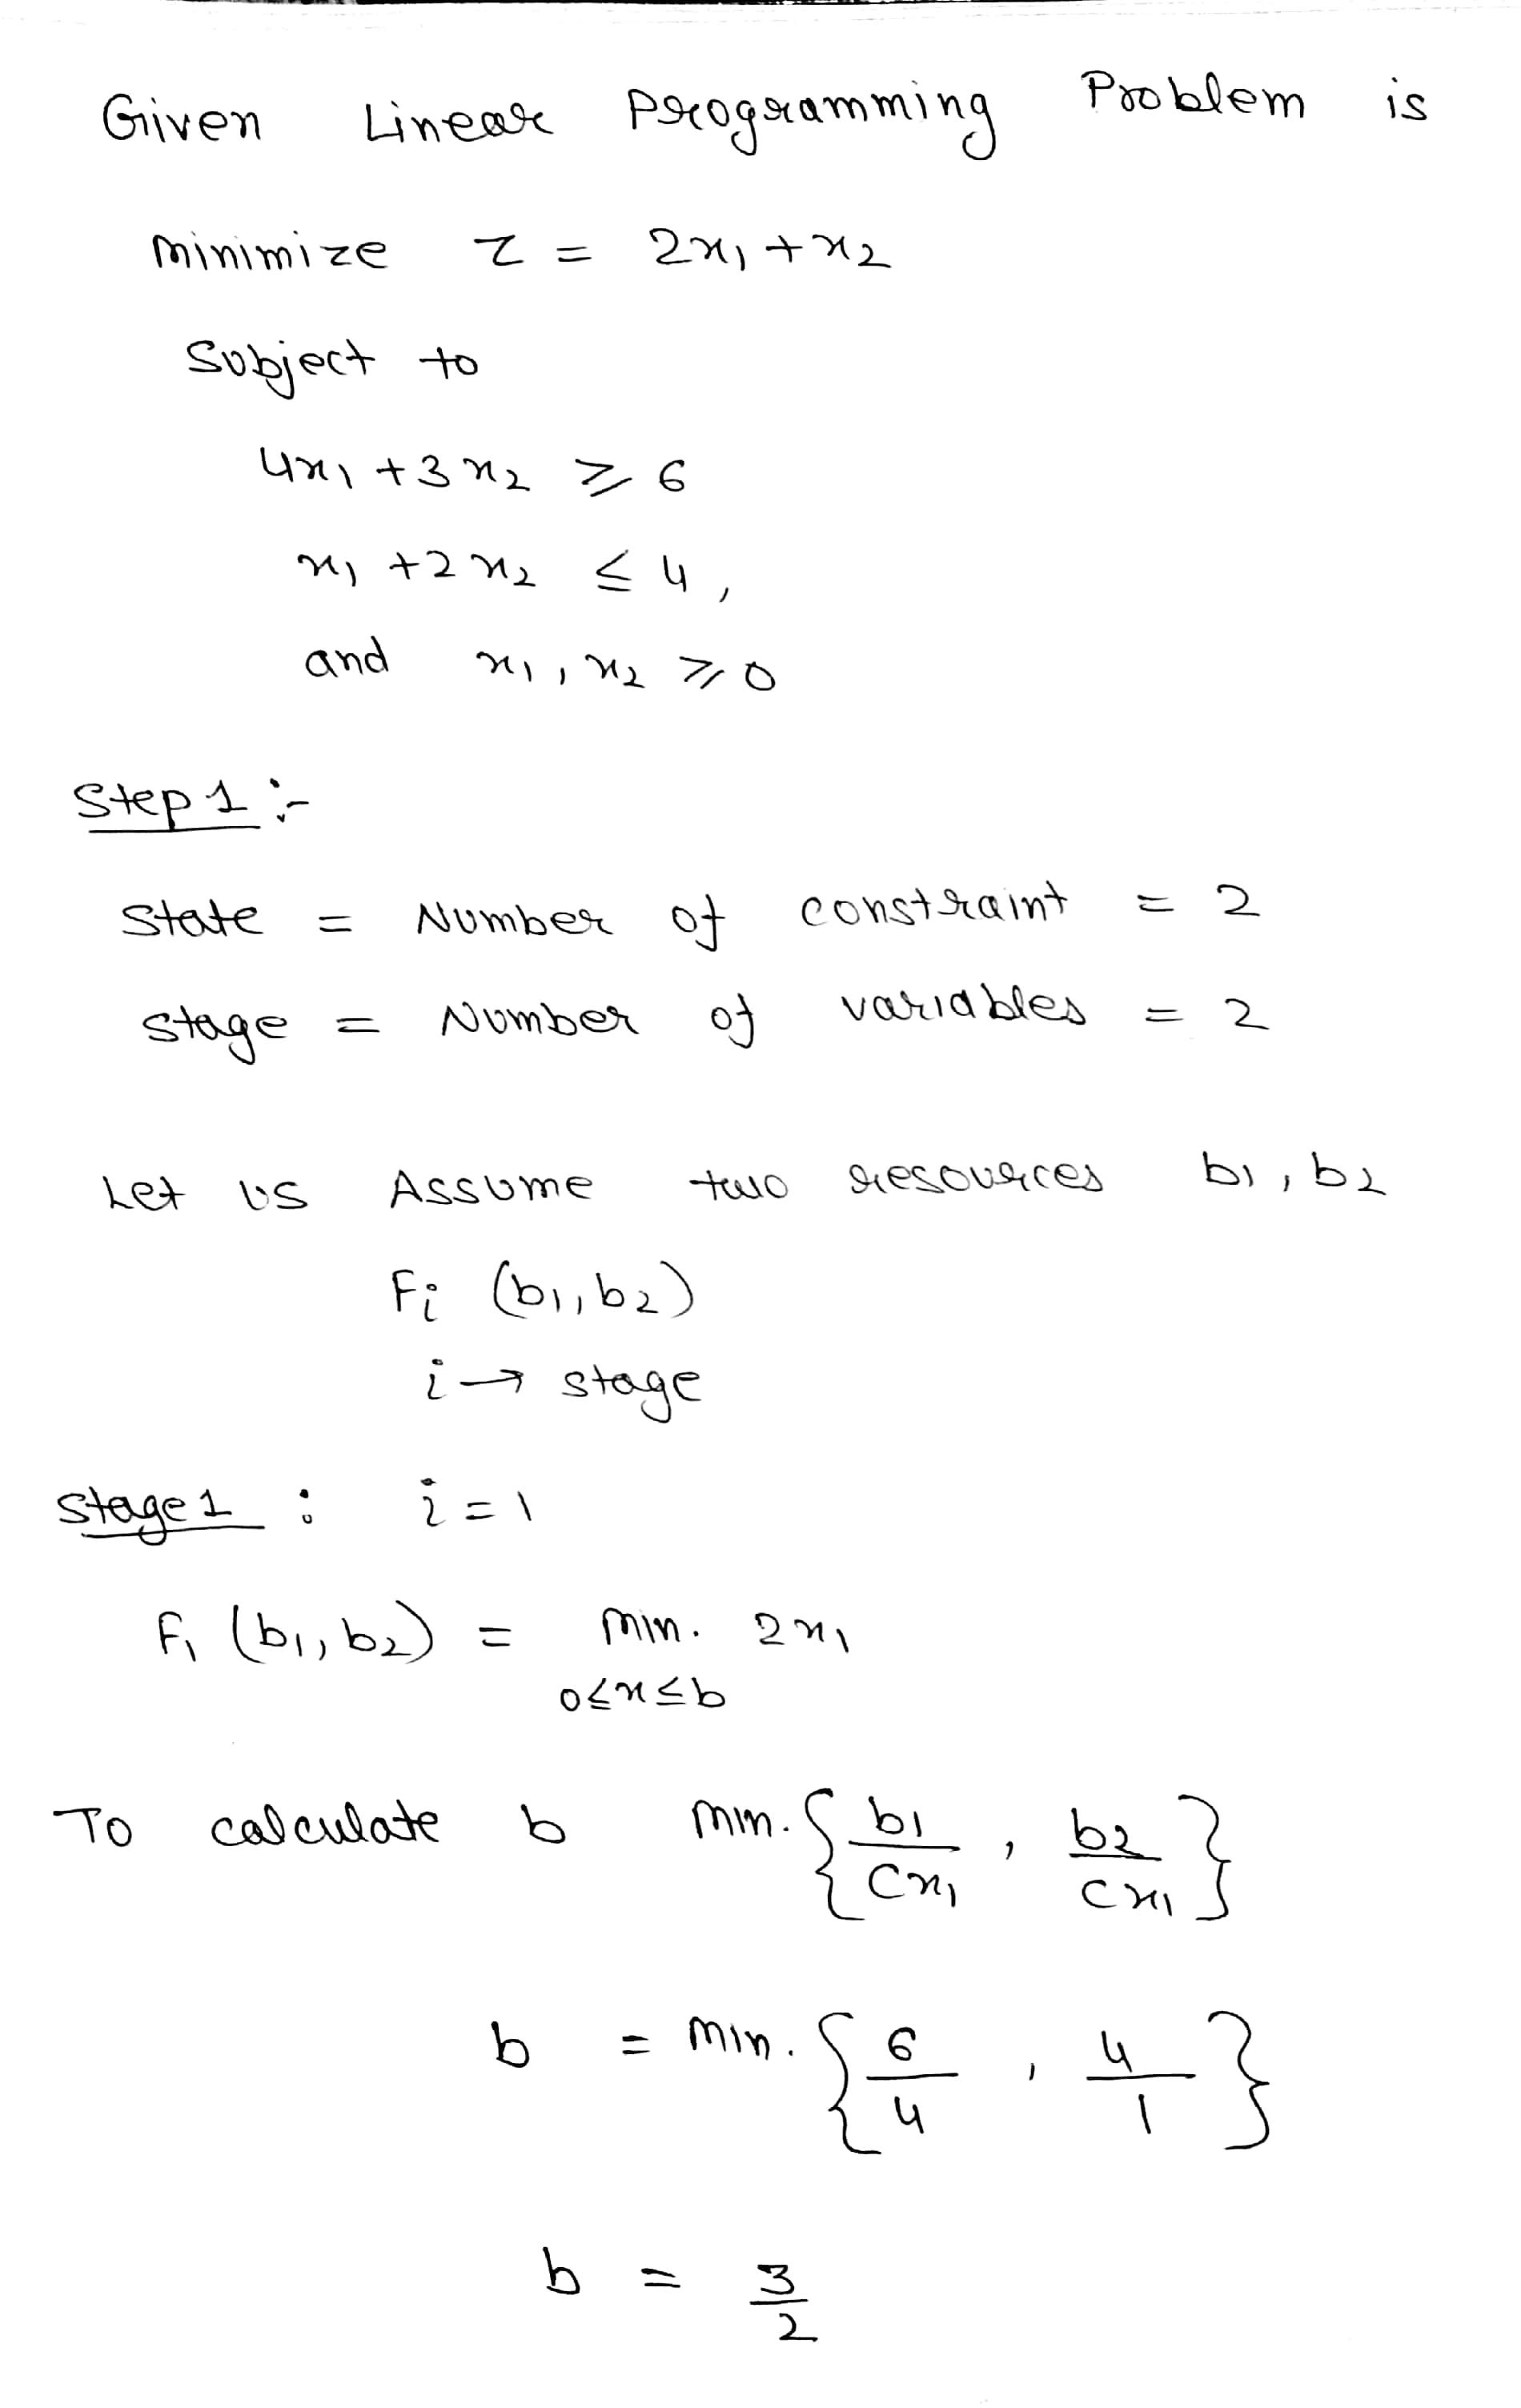 Given Linear Programming Problem is
Minimize z = 2x₁ + x₂
Subject to
4x₁ + 3x₂ ≥ 6
x₁ + 2x₂ ≤ 4,
and x₁, x₂ ≥ 0
Step 1 :-
State = Number of constraint = 2
Stage = Number of variables = 2
Let us Assume two resources b₁, b₂
Fᵢ (b₁, b₂)
i → stage
Stage 1 : i = 1
F₁ (b₁, b₂) = Min. 2x₁
0≤x≤b
To calculate b Min. { b₁/Cx₁ , b₂/Cx₁ }
b = Min. { 6/4 , 4/1 }
b = 3/2